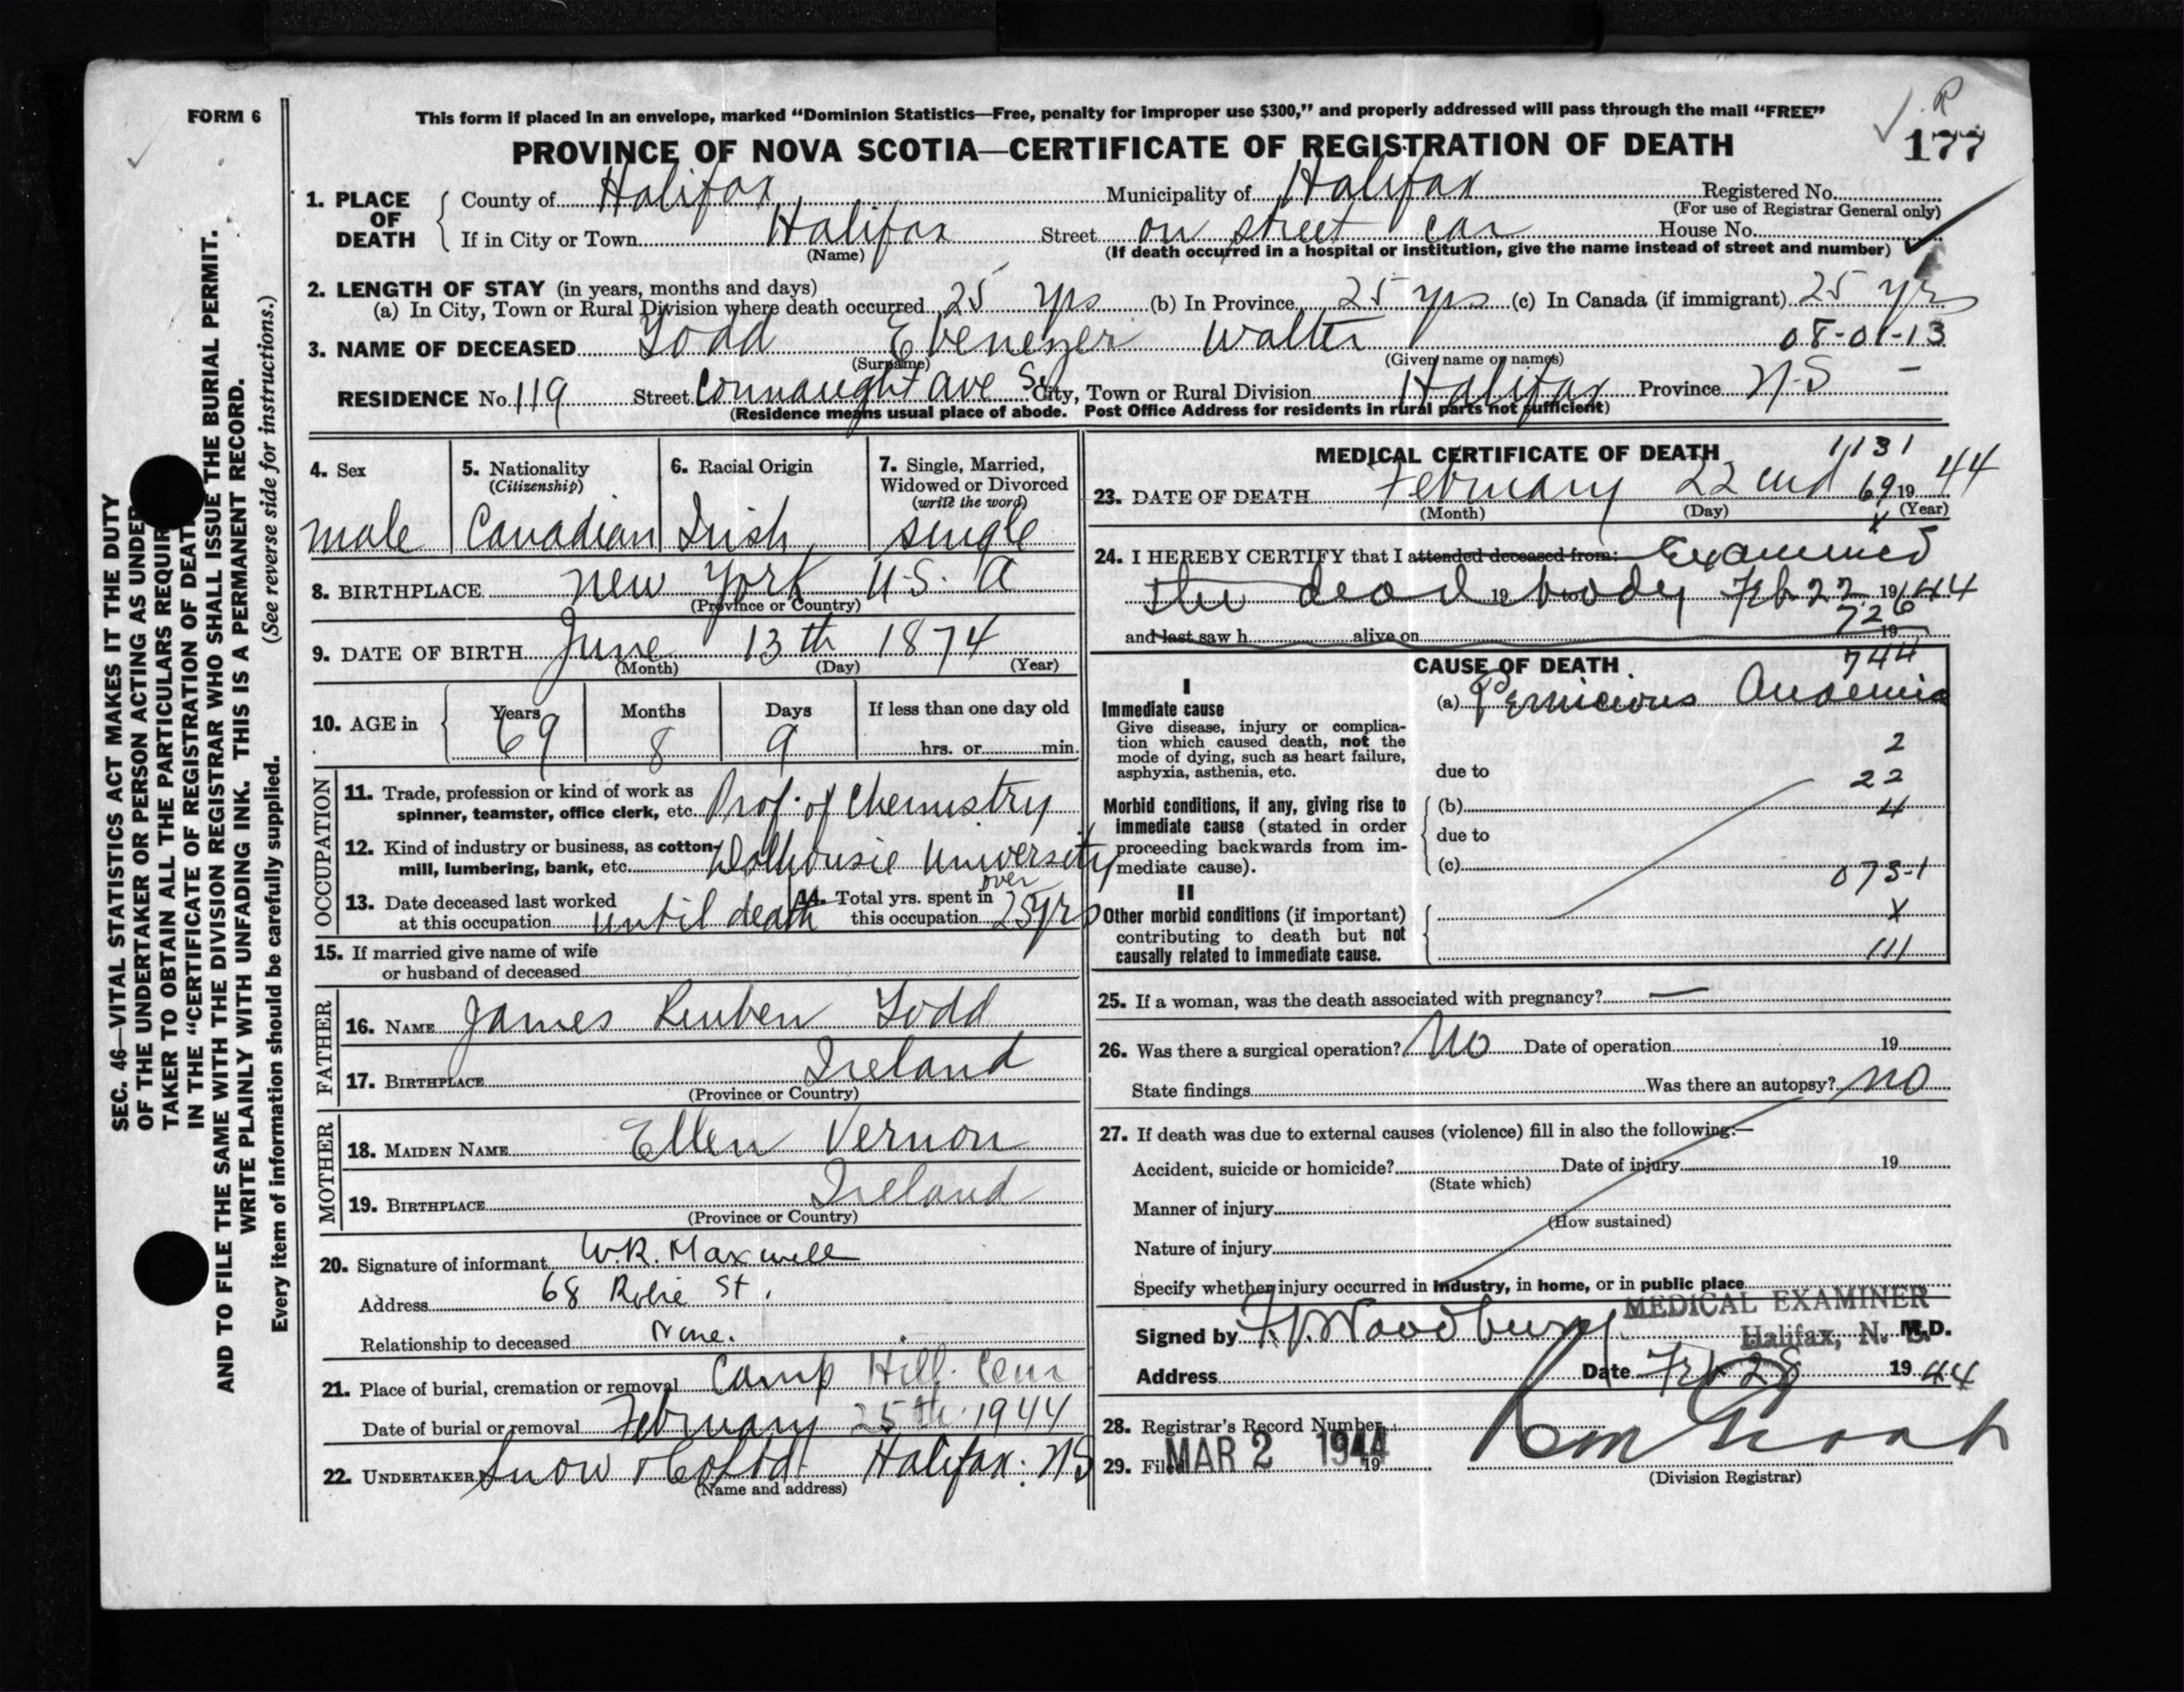 FORM 6
This form if placed in an envelope, marked “Dominion Statistics—Free, penalty for improper use $300,” and properly addressed will pass through the mail “FREE”
R
177
PROVINCE OF NOVA SCOTIA—CERTIFICATE OF REGISTRATION OF DEATH
1. PLACE OF DEATH
County of Halifax Municipality of Halifax Registered No.
(For use of Registrar General only)
If in City or Town Halifax Street on street car House No.
(Name) (If death occurred in a hospital or institution, give the name instead of street and number)
2. LENGTH OF STAY (in years, months and days)
(a) In City, Town or Rural Division where death occurred 25 yrs (b) In Province 25 yrs (c) In Canada (if immigrant) 25 yrs
3. NAME OF DECEASED Todd Ebenezer Walter 08-01-13
(Surname) (Given name or names)
RESIDENCE No. 119 Street Connaught Ave City, Town or Rural Division Halifax Province N-S -
(Residence means usual place of abode. Post Office Address for residents in rural parts not sufficient)
4. Sex
male
5. Nationality
(Citizenship)
Canadian
6. Racial Origin
Irish
7. Single, Married, Widowed or Divorced
(write the word)
single
8. BIRTHPLACE New York U.S. A
(Province or Country)
9. DATE OF BIRTH June 13th 1874
(Month) (Day) (Year)
10. AGE in
Years Months Days If less than one day old
69 8 9 hrs. or min.
OCCUPATION
11. Trade, profession or kind of work as
spinner, teamster, office clerk, etc. Prof. of Chemistry
12. Kind of industry or business, as cotton-
mill, lumbering, bank, etc. Dalhousie University
13. Date deceased last worked
at this occupation until death
14. Total yrs. spent in
this occupation over 25 yrs
15. If married give name of wife
or husband of deceased
FATHER
16. NAME James Reuben Todd
17. BIRTHPLACE Ireland
(Province or Country)
MOTHER
18. MAIDEN NAME Ellen Vernon
19. BIRTHPLACE Ireland
(Province or Country)
20. Signature of informant W.R. Maxwell
Address 68 Robie St.
Relationship to deceased None.
21. Place of burial, cremation or removal Camp Hill Cem
Date of burial or removal February 25th 1944
22. UNDERTAKER Snow & Co Ltd. Halifax. NS
(Name and address)
MEDICAL CERTIFICATE OF DEATH
1131
23. DATE OF DEATH February 22 69 19 44
(Month) (Day) (Year)
24. I HEREBY CERTIFY that I attended deceased from: Examined
the dead 19 body to Feb 22 1944
726
and last saw h alive on 19
CAUSE OF DEATH
744
I
Immediate cause
Give disease, injury or complica-
tion which caused death, not the
mode of dying, such as heart failure,
asphyxia, asthenia, etc.
(a) Pernicious Anaemia
2
due to
22
Morbid conditions, if any, giving rise to
immediate cause (stated in order
proceeding backwards from im-
mediate cause).
(b)
4
due to
(c)
073-1
II
Other morbid conditions (if important)
contributing to death but not
causally related to immediate cause.
X
111
25. If a woman, was the death associated with pregnancy? —
26. Was there a surgical operation? No Date of operation 19
State findings Was there an autopsy? no
27. If death was due to external causes (violence) fill in also the following:—
Accident, suicide or homicide? Date of injury 19
(State which)
Manner of injury
(How sustained)
Nature of injury
Specify whether injury occurred in industry, in home, or in public place
MEDICAL EXAMINER
Signed by Woodbury Halifax, N. S. M.D.
Address Date Feb 28 19 44
28. Registrar’s Record Number
29. Filed MAR 2 1944 19
(Division Registrar)
SEC. 46—VITAL STATISTICS ACT MAKES IT THE DUTY
OF THE UNDERTAKER OR PERSON ACTING AS UNDER
TAKER TO OBTAIN ALL THE PARTICULARS REQUIR
IN THE “CERTIFICATE OF REGISTRATION OF DEATH
AND TO FILE THE SAME WITH THE DIVISION REGISTRAR WHO SHALL ISSUE THE BURIAL PERMIT.
WRITE PLAINLY WITH UNFADING INK. THIS IS A PERMANENT RECORD.
Every item of information should be carefully supplied. (See reverse side for instructions.)